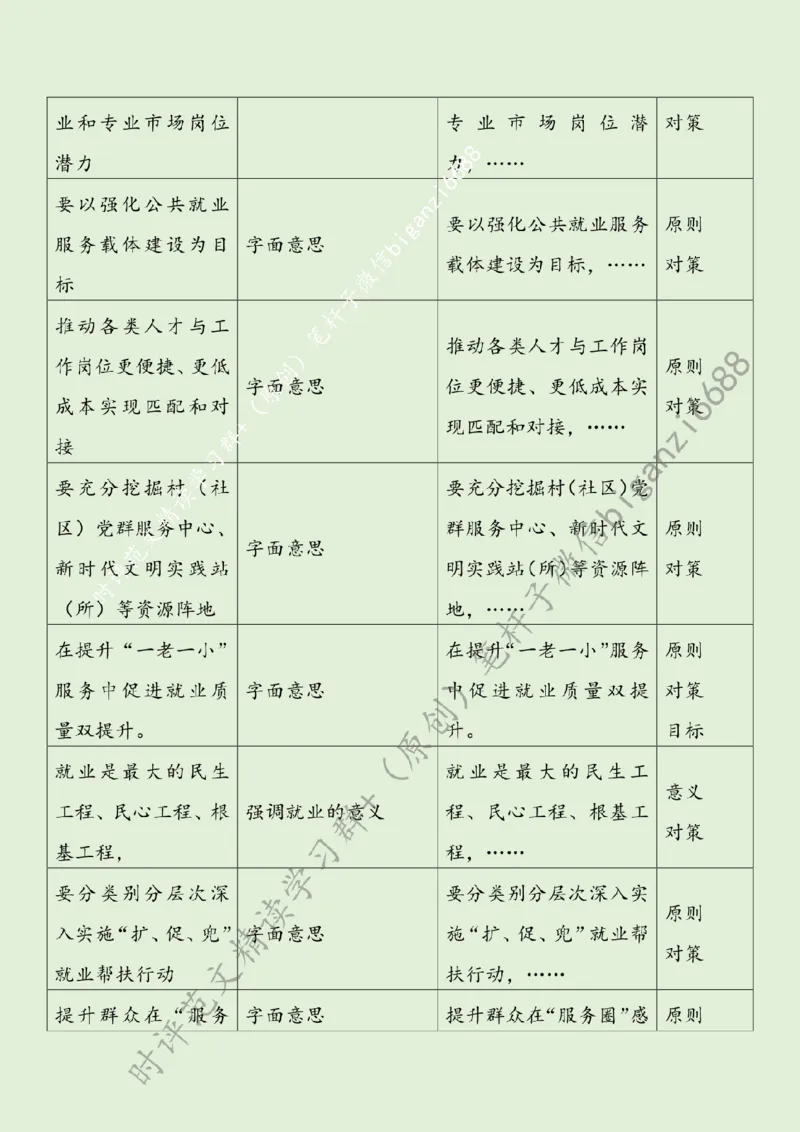 业和专业市场岗位
潜力
专业市场岗位潜
力，……
对策
要以强化公共就业
服务载体建设为目
标
字面意思
要以强化公共就业服务
载体建设为目标，……
原则
对策
推动各类人才与工
作岗位更便捷、更低
成本实现匹配和对
接
字面意思
推动各类人才与工作岗
位更便捷、更低成本实
现匹配和对接，……
原则
对策
要充分挖掘村（社
区）党群服务中心、
新时代文明实践站
（所）等资源阵地
字面意思
要充分挖掘村（社区）党
群服务中心、新时代文
明实践站（所）等资源阵
地，……
原则
对策
在提升“一老一小”
服务中促进就业质
量双提升。
字面意思
在提升“一老一小”服务
中促进就业质量双提
升。
原则
对策
目标
就业是最大的民生
工程、民心工程、根
基工程，
强调就业的意义
就业是最大的民生工
程、民心工程、根基工
程，……
意义
对策
要分类别分层次深
入实施“扩、促、兜”
就业帮扶行动
字面意思
要分类别分层次深入实
施“扩、促、兜”就业帮
扶行动，……
原则
对策
提升群众在“服务
字面意思
提升群众在“服务圈”感
原则
时评范文精读学习群+（原创）笔杆子微信biganzi6688
时评范文精读学习群+（原创）笔杆子微信biganzi6688